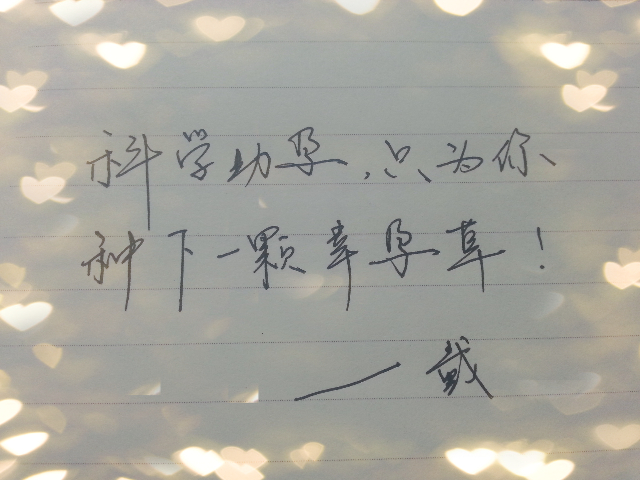 科学助孕，只为你
种下一颗幸孕草！
——戴